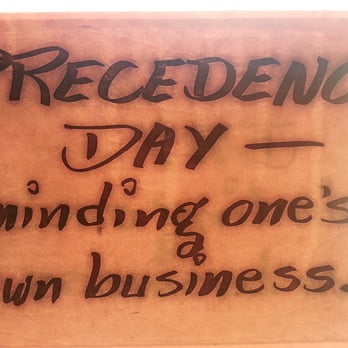 PRECEDENC
DAY —
minding one's
wn business.